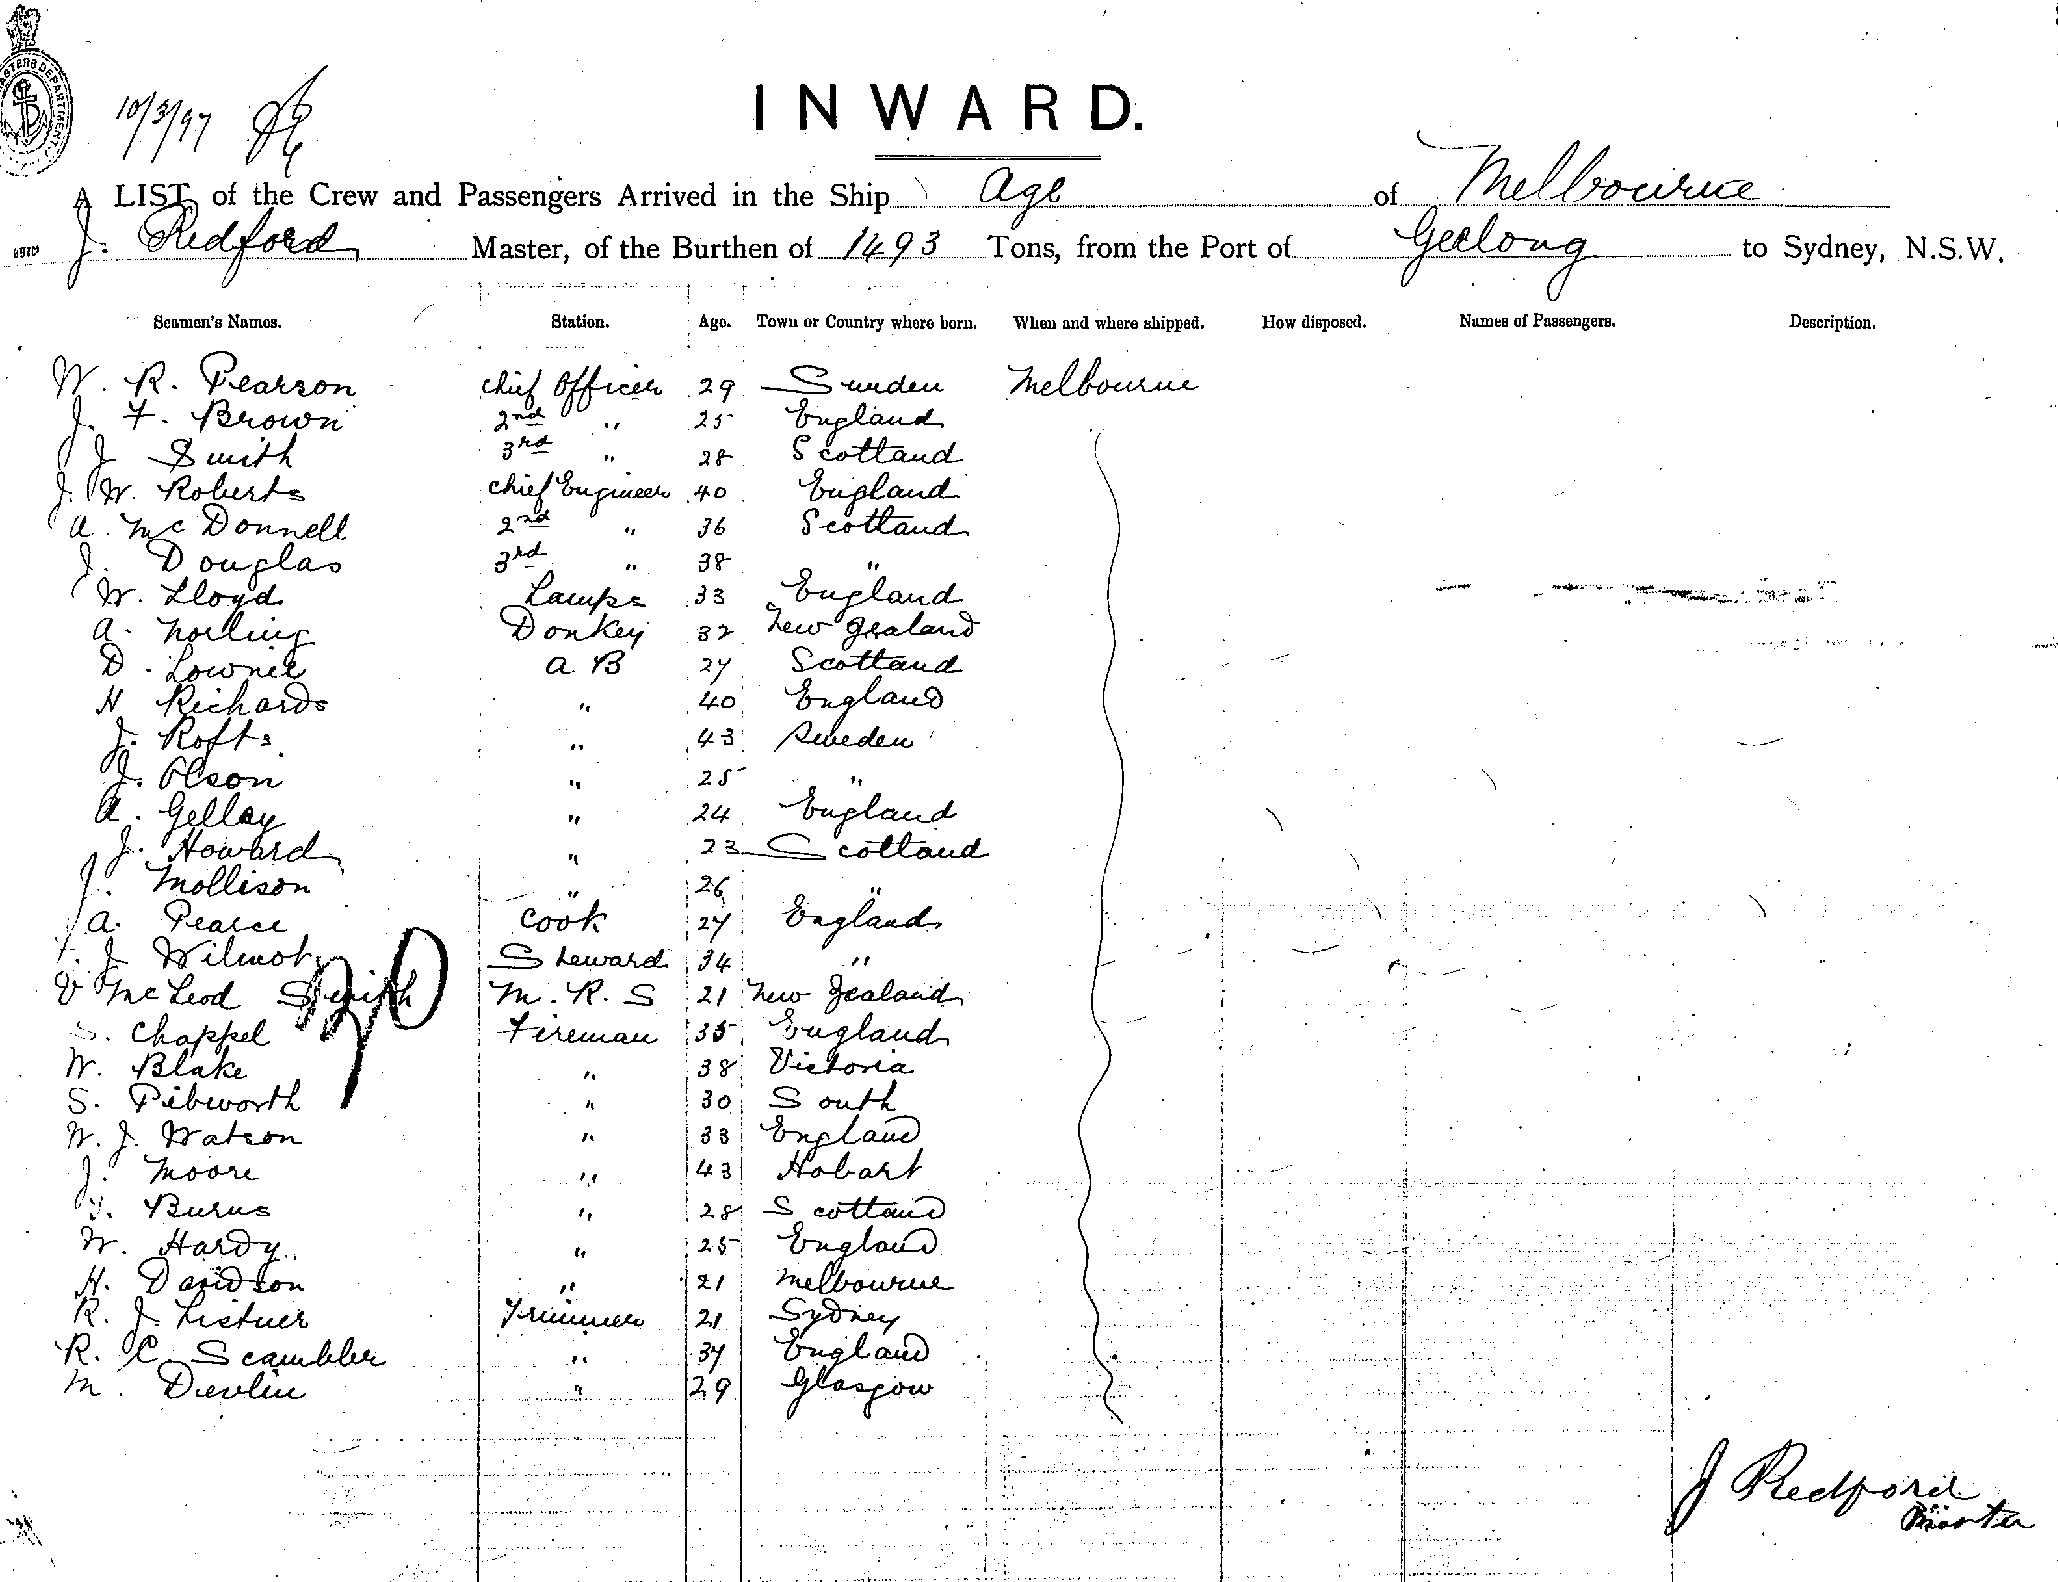 10/3/97
INWARD.
A LIST of the Crew and Passengers Arrived in the Ship Age of Melbourne
J. Redford Master, of the Burthen of 1493 Tons, from the Port of Geelong to Sydney, N.S.W.
Seamen's Names. Station. Age. Town or Country where born. When and where shipped. How disposed. Names of Passengers. Description.
W. R. Pearson Chief Officer 29 Sweden Melbourne
J. F. Brown 2nd " 25 England
J Smith 3rd " 28 Scotland
J. W. Roberts Chief Engineer 40 England
A. McDonnell 2nd " 36 Scotland
J. Douglas 3rd " 38 "
W. Lloyd Lamps 33 England
A. Norling Donkey 32 New Zealand
D. Lownie A B 27 Scotland
H Richards " 40 England
J. Rofts " 43 Sweden
J. Olson " 25 "
A. Gellay " 24 England
J. Howard " 23 Scotland
J. Mollison " 26 "
A. Pearce Cook 27 England
J Wilmot Steward 34 "
V McLeod Smith M. R. S 21 New Zealand
S. Chappel Fireman 35 England
W. Blake " 38 Victoria
S. Pibworth " 30 South
W. J. Watson " 33 England
J. Moore " 43 Hobart
J. Burns " 28 Scotland
W. Hardy " 25 England
H. Davidson " 21 Melbourne
R. J. Listner Trimmer 21 Sydney
R. C. Scambler " 37 England
M. Devlin " 29 Glasgow
J Redford
Master